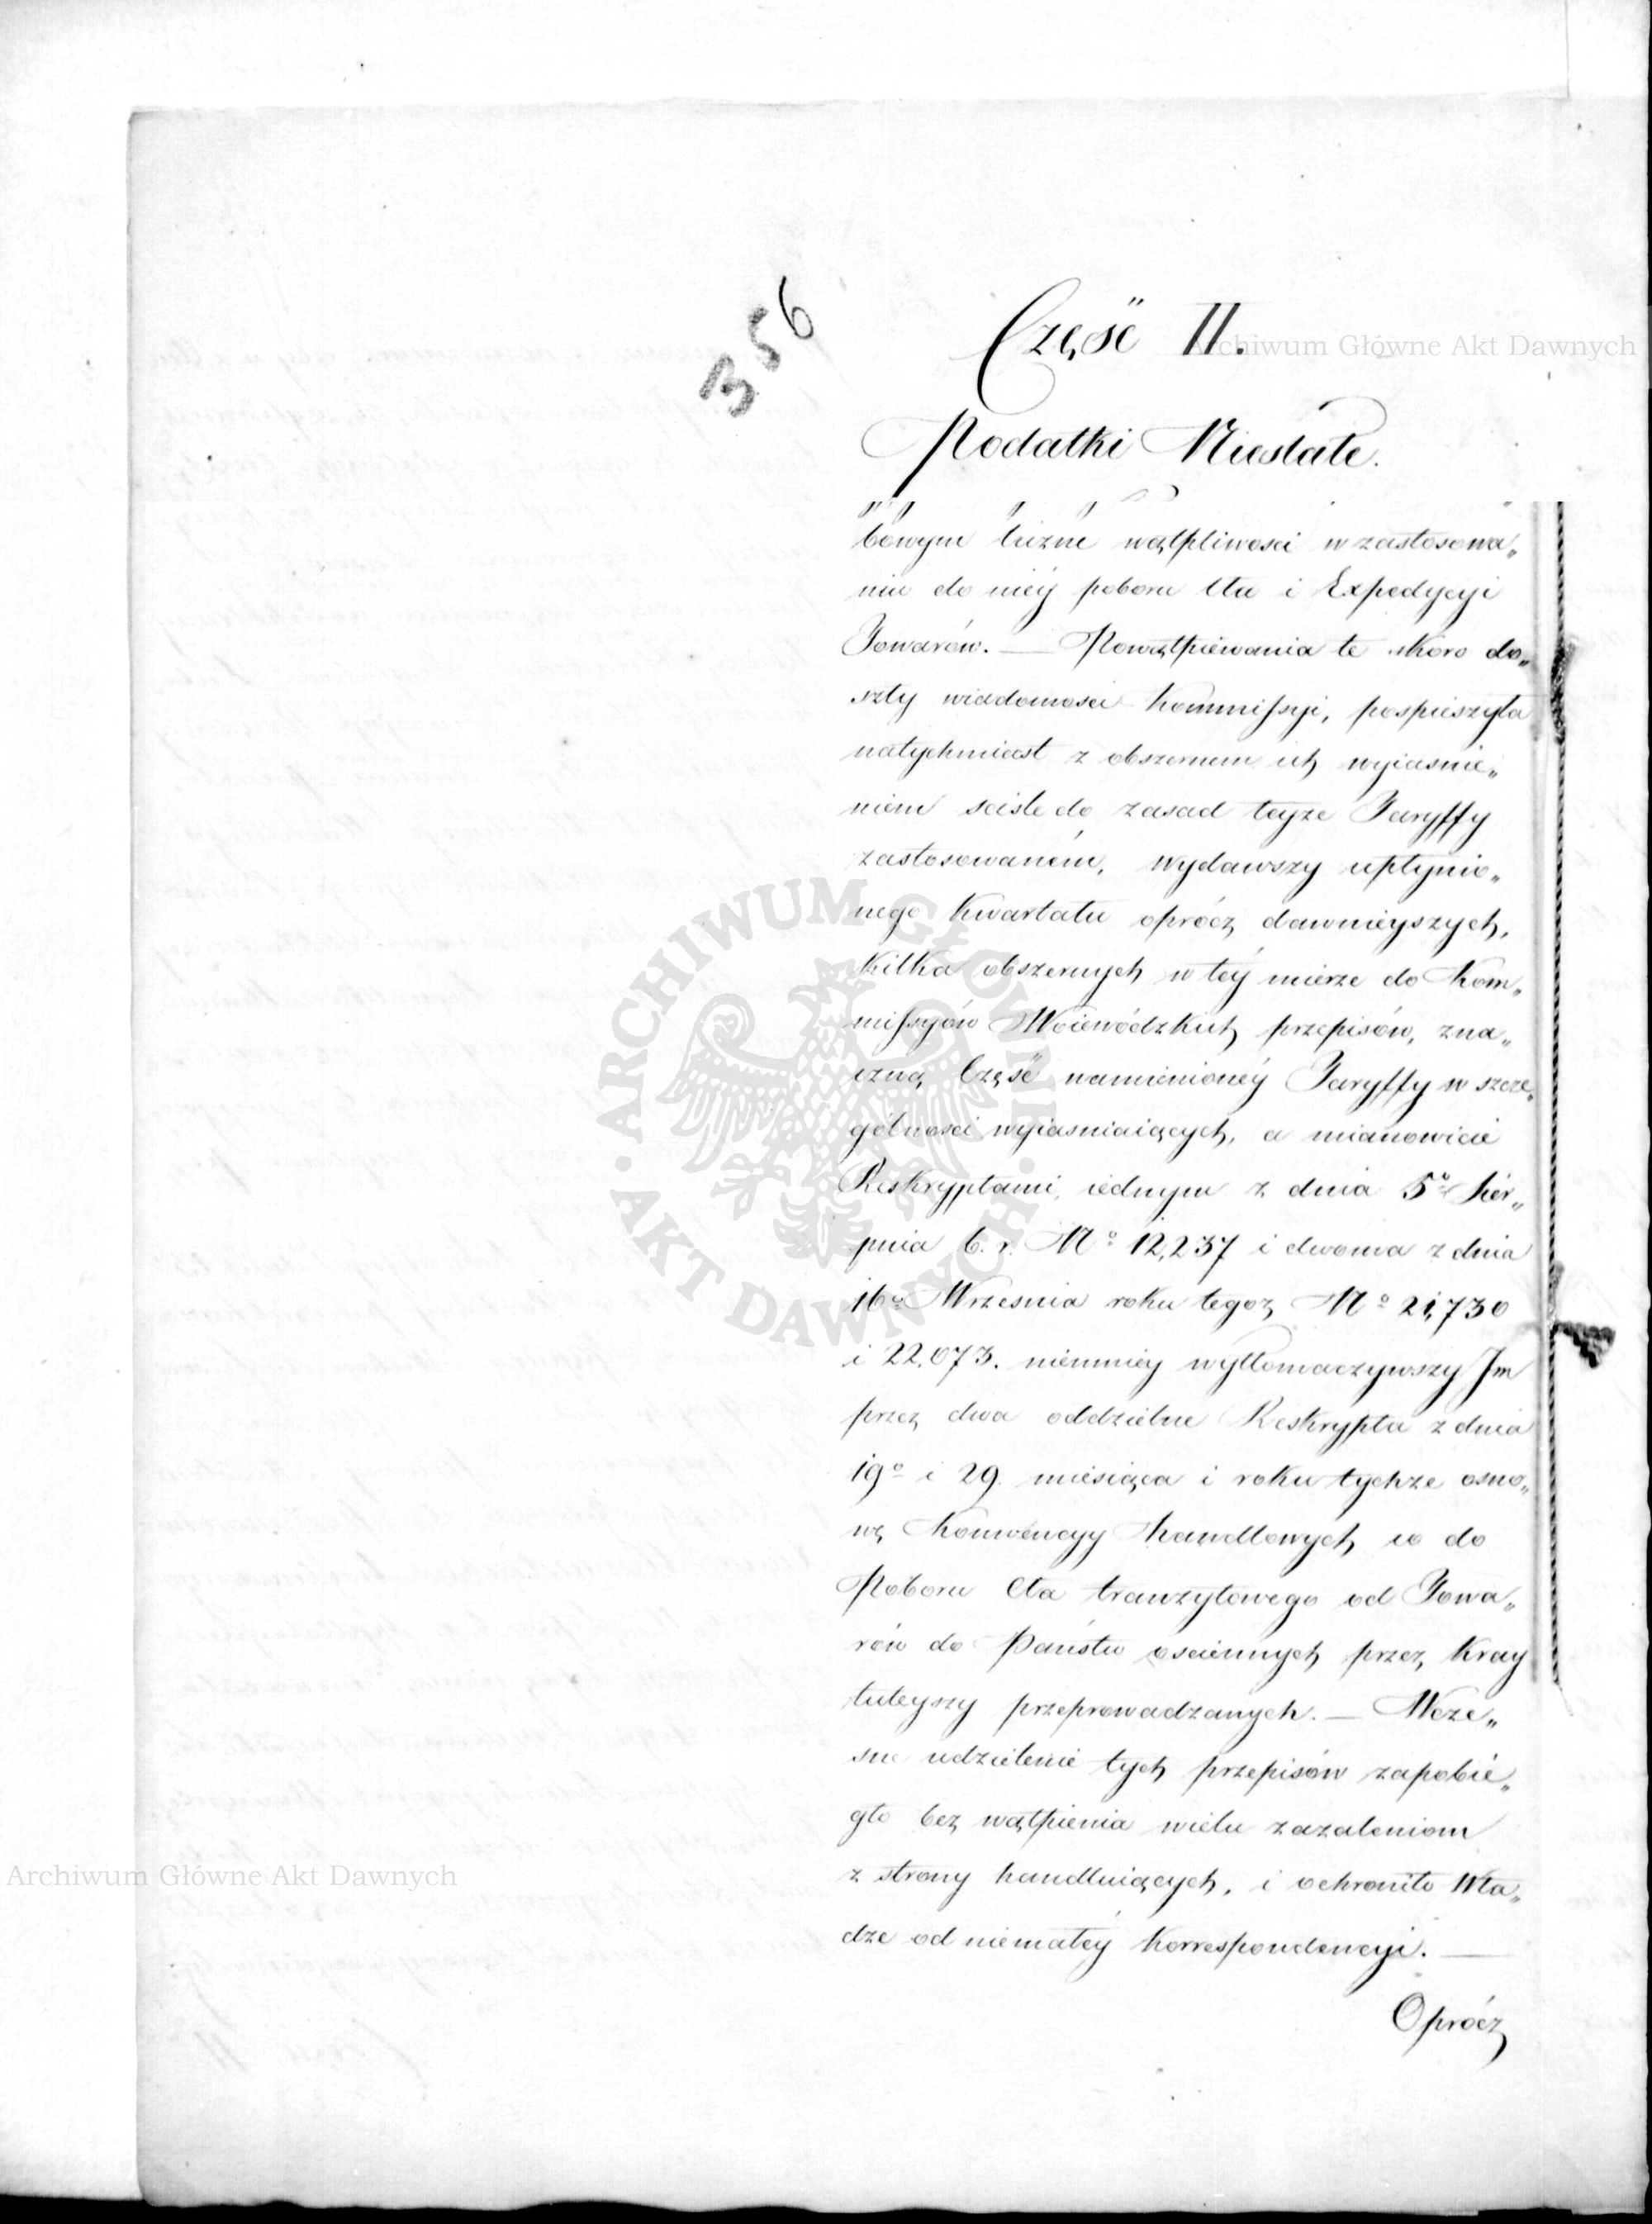 356
Część II.
Podatki Niestałe.
bowym liczne wątpliwości w zastosowa„
niu do niéy poboru Cła i Expedycyi
Towarów. — Powątpiewania te skoro do„
szły wiadomości Kommissyi, pospieszyła
natychmiast z obszernem ich wyiaśnie„
niem ściśle do zasad teyże Taryffy
zastosowaném, wydawszy upłynio„
nego Kwartału oprócz dawnieyszych,
Kilka obszernych w téy mierze do Kom„
missyów Woiewódzkich przepisów, zna„
czną Część namienionéy Taryffy w szcze„
gólności wyiaśniaiących, a mianowicie
Reskryptami, iednym z dnia 5º Sier„
pnia b. r. Nº 12,237 i dwoma z dnia
16º Września roku tegoż Nº 21,730
i 22,073. niemniey wytłomaczywszy Jm
przez dwa oddzielne Reskrypta z dnia
19º i 29. miesiąca i roku tychże osno„
wę Konwencyy Handlowych co do
Poboru Cła tranzytowego od Towa„
rów do Państw ościennych przez Kray
tuteyszy przeprowadzanych. — Wcze„
sne udzielenie tych przepisów zapobie„
gło bez wątpienia wielu zażaleniom
z strony handluiących, i ochroniło Wła„
dze od niemałéy Korrespondencyi. —
Oprócz
Archiwum Główne Akt Dawnych
ARCHIWUM GŁÓWNE • AKT DAWNYCH •
Archiwum Główne Akt Dawnych